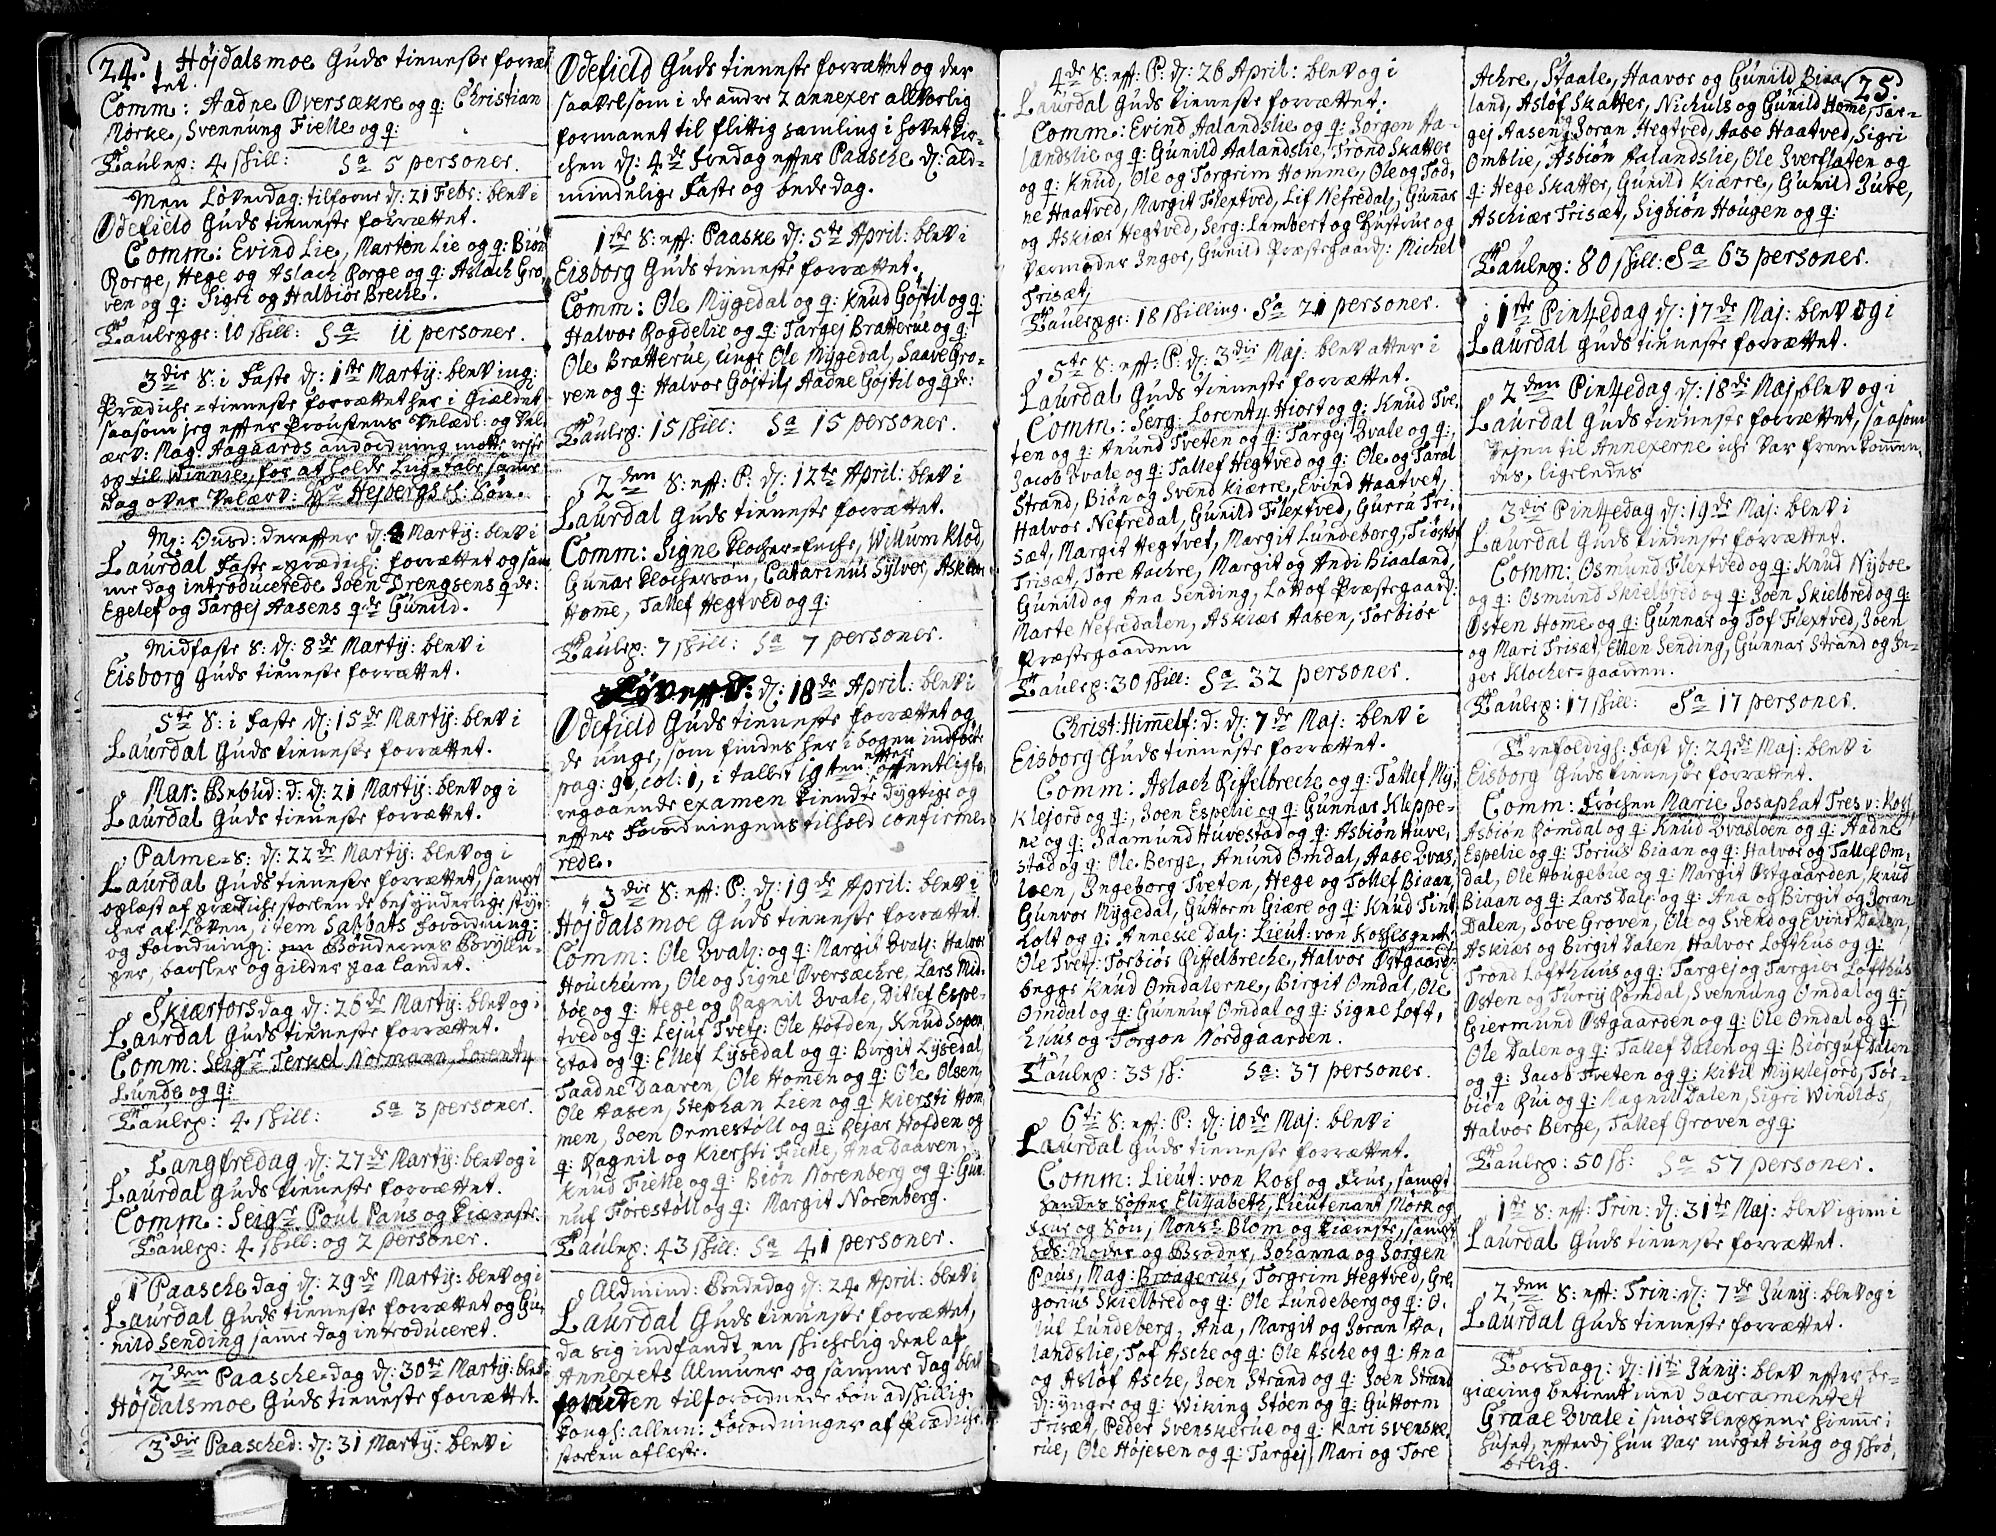 24.
1 Højdalsmoe Guds tieneste forræt
tet.
Comm: Aadne Oversækre og q: Christian
Mørke, Svennung Fielle og q:
4 skill: Sa 5 personer.
Men Løverdag: tilforne d: 21 Febr: blev i
Ødefield Guds tieneste forrættet.
Comm: Evind Lie, Marten Lie og q: Biøn
Rorge, Hege og Aslach Rorge og q: Aslach Gro,
ven og q: Sigri og Halbiør Breche.
10 skill: Sa 11 personer.
3die S: i Faste d: 1ste Martij: blev ing:
Prædiche-tieneste forrættet her i Gieldet
saasom jeg effter Provstens
Mag: Aagaards andordning motte rejse
op til Winnie, for at holde Liig-tale samme
Dag over
Ons d: dereffter d: 4 Martij: blev i
Laurdal Faste-prædich: forrættet og sam
me dag introducerede Joen Drengsens q de:
Egelef og Targej Aasens q de Gunild.
Midfaste S: d: 8de Martij: blev i
Eisborg Guds tieneste forrættet.
5te S: i Faste d: 15de Martij: blev i
Laurdal Guds tieneste forrættet.
Mar: Bebud: d: d: 21 Martij: blev og i
Laurdal Guds tieneste forrættet.
Palme-S: d: 22de Martij: blev og i
Laurdal Guds tieneste forrættet, sampt
oplæst af prædichestoelen de
af Loven, item Sabbats Forordning:
og Forordning: om Bøndernes Brylup-
per, barsler og gilder paa landet.
Skiærtorsdag d: 26de Martij: blev og i
Laurdal Guds tieneste forrættet.
Comm: Seigr Terkel Normann, Lorentz
Lunde og q:
4 skill: Sa 3 personer.
Langfredag d: 27de Martij: blev og i
Laurdal Guds tieneste forrættet.
Comm: Seigr Poul Paus og Kiæreste.
4 skill: og 2 personer.
1 Paaschedag d: 29de Martij: blev og i
Laurdal Guds tieneste forrættet og Gu-
nild Sending same dag introduceret.
2den Paasche-dag d: 30te Martij: blev
Højdalsmoe Guds tieneste forrættet.
3die Paasched: d: 31 Martij: blev i
Ødefield Guds tieneste forrættet og der
saavelsom i de andre 2 annexer alvorlig
formanet til flittig samling i hovet kir-
chen d: 4de Fredag effter Paasche d: ald-
mindelige Faste og bededag.
1ste S: eff: Paaske d: 5te April: blev i
Eisborg Guds tieneste forrættet.
Comm: Ole Mygedal og q: Knud Gøjtil og q:
Halvor Rogdelie og q: Targej Bratterue og q:
Ole Bratterue, unge Ole Mygedal, Saave Gro-
ven og q: Halvor Gøjtil, Aadne Gøjtil og q de:
15 skill: Sa 15 personer.
2den S: eff: P: d: 12te April: blev i
Laurdal Guds tieneste forrættet.
Comm: Signe Klocher-Enche, Willum Klod,
Gunar Klochersøn, Catarinus Sylver,
Home, Tallef Hegtved og q:
7 skill: Sa 7 personer.
Løverd: d: 18de April: blev i
Ødefield Guds tieneste forrættet og
de unge, som findes her i bogen indført
pag: 91, col: 1, i tallet 19ten, effter offentlig fo-
regaaende examen kiendte dygtige og
effter Forordningens tilhold confirme-
rede.
3die S: eff: P: d: 19de April: blev i
Højdalsmoe Guds tieneste forrættet.
Comm: Ole Dval: og q: Margit Dval: Halvor
Houcheim, Ole og Signe Oversæchre, Lars Mid-
bøe og q: Hege og Ragnil Dvale, Ditlef Espe-
tved og q: Lejuf Tvet: Ole Hofden, Knud Soper,
stad og q: Ellef Lysedal og q: Birgit Lysedal,
Taadne Daaren, Ole Homen og q: Ole Olsen,
Ole Aasen, Stephan Lien og q: Kiersti Hom,
men, Joen Ormestøll og q: Rejar Hofden og
q: Ragnil og Kiersti Fielle, Ana Daaren,
Knud Fielle og q: Biøn Norenberg og q: Gun-
nuf Forestøll og q: Margit Norenberg.
43 skill: Sa 41 personer.
Aldmind: Bededag d: 24 April: blev i
Laurdal Guds tieneste forrættet,
da sig indfandt en skichelig deel af
Annexets Almuer og samme dag blef
foruden tilforordnede bøn adskillig
Kongl: allern: Forordninger af Prædiche
stoelen aflæste.
4de S: eff: P: d: 26 April: blev og i
Laurdal Guds tieneste forrættet.
Comm: Evind Aalandslie og q: Jørgen Aa-
landslie og q: Gunild Aalandslie, Trond Skatter
og q: Knud, Ole og Torgrim Homme, Ole og Tod,
ne Haatved, Margit Flextved, Lif Nefredal, Gunar
og Askiær Hegtved, Serg: Lambert og Hustrue og
Værmoder Inger, Gunild Præstegaard: Michel
Trisæt,
18 skilling. Sa 21 personer.
5te S: eff: P: d: 3die Maj: blev atter i
Laurdal Guds tieneste forrættet.
Comm: Serg: Lorentz Hiort og q: Knud Tve,
ten og q: Anund Tveten og q: Targej Dvale og q:,
Jacob Dvale og q: Tallef Hegtved og q: Ole og Taral
Strand, Biøn og Svend Kiærre, Evind Haatvet,
Halvor Nefredal, Gunild Flextved, Gurru Tri,
sæt, Margit Hegtvet, Margit Lundeberg,
Trisæt, Tore Aachre, Margit og Andi Biaaland,
Gunild og Ana Sending, Lottof Præstegaard:
Marte Nefredalen, Askiær Aasen, Torbiør
Præstegaarden
30 skill: Sa 32 personer.
Christ: Himmelf: d: d: 7de Maj: blev i
Eisborg Guds tieneste forrættet.
Comm: Aslach Riffelbreche og q: Tallef My,
klejord og q:, Joen Espelie og q: Gunnar Kleppe-
ne og q: Saamund Huvestad og q: Asbiøn Huve,
stad og q: Ole Berge, Anund Omdal, Aase Dvas,
loen, Ingeborg Tveten, Hege og Tollef Biaan,
Gunvor Mygedal, Guttorm Giære og q: Knud Tint
holt og q: Anneke Dal: Lieut: von Kosses gent:
Ole Tvet: Torbiør Riffelbreche, Halvor Østgaard:
begge Knud Omdalerne, Birgit Omdal, Ole
Omdal og q: Gunnuf Omdal og q: Signe Loft,
huus og Torgon Nordgaarden.
35 sk: Sa: 37 personer.
6te S: eff: P: d: 10de Maj: blev i
Laurdal Guds tieneste forrættet.
Comm: Lieut: von Koss og Frue, sampt
hendes Søster Elizabeth, Lieutenant Mørk og
Frue og Søn, Monsr Blom og Kiæreste, sampt
Moder og Broder, Johanna og Jørgen
Paus, Mag: Braagerus, Torgrim Hegtved, Gre,
gorius Skielbred og q: Ole Lundeberg og q: O,
luf Lundeberg, Ana, Margit og Joran Aa,
landslie, Tof Asche og q: Ole Asche og q: Ana
og Asløf Asche, Joen Strand og q: Joen Strand
d: ynger og q: Wiking Støen og q: Guttorm
Trisæt, Peder Svenskerue og q: Kari Svenske,
rue, Ole Højesen og q: Targej, Mari og Tore
25.
Achre, Staale, Haavor og Gunild Biaa,
land, Asløf Skatter, Nichuls og Gunild Home, Tar-
gej Aasen og Joran Hegtved, Aase Haatved, Sigri
Omblie, Asbiøn Aalandslie, Ole Sverflaten og
q: Hege Skatter, Gunild Kiærre, Gunild Juve,
Aschiær Trisæt, Sigbiøn Hougen og q:
80 skill: Sa 63 personer.
1ste Pintzedag d: 17de Maj: blev og i
Laurdal Guds tieneste forrættet.
2den Pintzedag d: 18de Maj blev og i
Laurdal Guds tieneste forrættet, saasom
Vejen til Annexerne iche var fremkommen-
des, ligeledes
3die Pintzedag d: 19de Maj: blev i
Laurdal Guds tieneste forrættet.
Comm: Osmund Flextved og q: Knud Nyboe
og q: Osmund Skielbred og q: Joen Skielbred og q:
Østen Home og q: Gunnar og Tof Flextved, Joen
og Mari Trisæt, Ellen Sending, Gunnar Strand og In-
ger Klocher-gaarden.
17 skill: Sa 17 personer.
Trefoldigh: Fæst d: 24de Maj: blev i
Eisborg Guds tieneste forrættet.
Comm: Frøchen Marie Josaphat Tres v: Koss,
Asbiøn Romdal og q: Knud Dvasloen og q: Aadne
Espelie og q: Torius Biaan og q: Halvor og Tallef Om,
dal, Ole Haugebue og q: Margit Østgaarden, Knud
Biaan og q: Lars Dal: og q: Ana og Birgit og Joran
Dalen, Tove Groven, Ole og Svend og Evind Dalen,
Askiær og Birgit Dalen, Halvor Lofthus og q:
Trond Lofthuus og q: Targej og Targier Lofthus
Østen og Turrij Romdal, Svennung Omdal og q:
Giermund Østgaarden og q: Ole Omdal og q:
Ole Dalen og q: Tallef Dalen og q: Biørguf Dalen
og q: Jacob Tveten og q: Kitil Myklejord, Tor-
biøn Rui og q: Ragnil Dalen, Sigri Windløs,
Halvor Berge, Tallef Groven og q:
50 sk: Sa 57 personer.
1ste S: eff: Trin: d: 31te Maj: blev igien i
Laurdal Guds tieneste forrættet.
2den S: eff: Trin: d: 7de Junij: blev og i
Laurdal Guds tieneste forrættet.
Torsdag: d: 11te Junij: blev effter be-
giæring betient med Sacramentet
Graae Dvale i smør Kleppene hiemme i
huset, efferdj hun var meget siug og skrø,
belig.